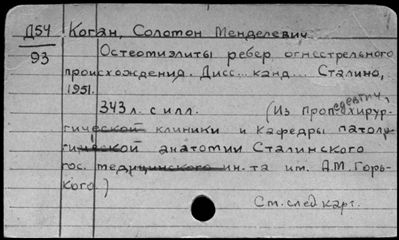 Д54
93
Коган, Соломон Менделевич.
Остеомиэлиты ребер огнестрельного
происхождения. Дисс... канд.... Сталино,
1951.
343 л. с илл. (Из пропедевтич,
хирур-
гической клиники и кафедры патоло
гической анатомии Сталинского
гос. медицинского ин-та им. А.М. Горь-
кого)
См. след карт.